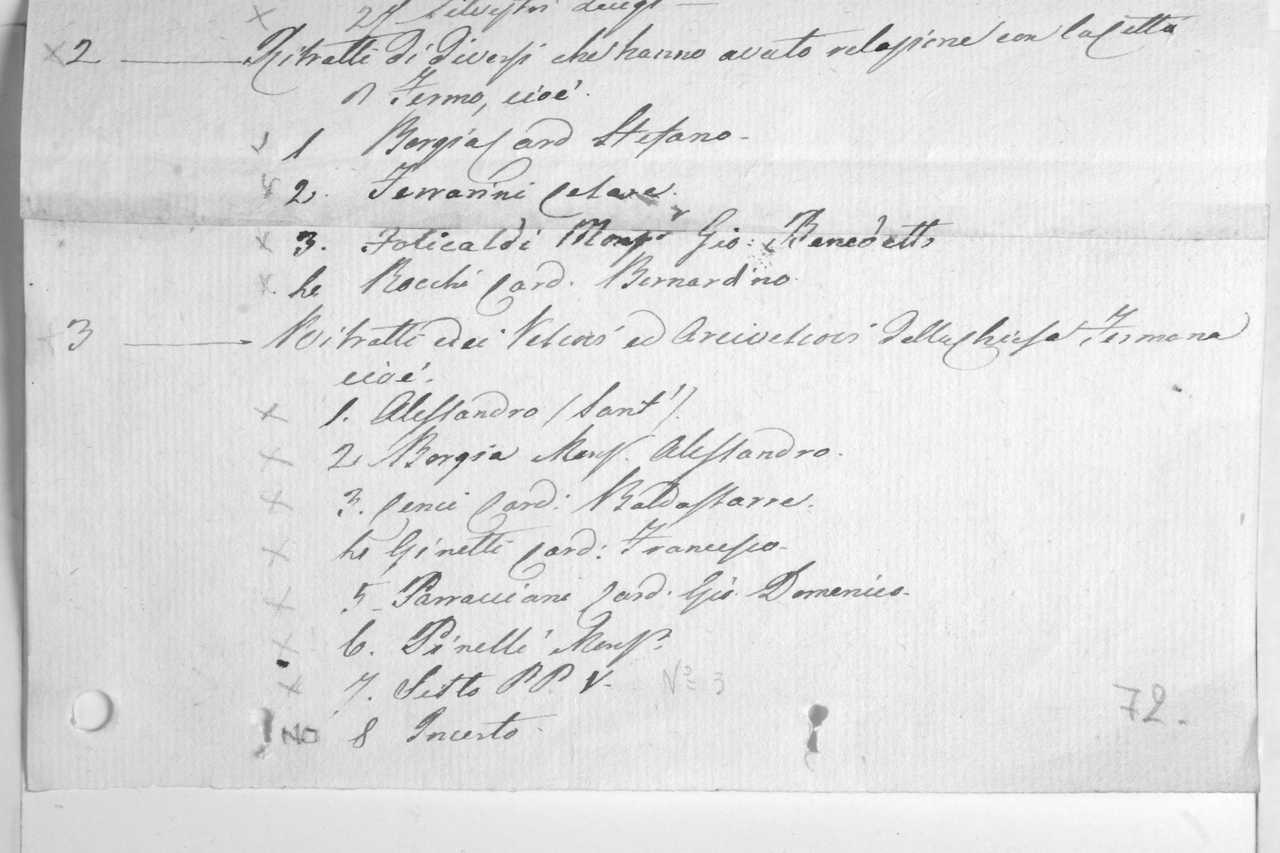 x 28 Silvestri
x 2 Ritratti di diversi che hanno avuto relasione con la Città
di Fermo, cioè.
1 Borgia Card Stefano
x 2. Ferrarini Cesare.
x 3. Folicaldi Monsr Gio: Benedetto
x 4 Rocchi Card. Bernardino
x 3 Ritratti dei Vescovi ed Arcivescovi della Chiesa Fermana
cioè.
x 1. Alessandro (Sant')
x 2 Borgia Mons. Alessandro.
x 3. Cenci Card: Baldassarre.
x 4 Ginetti Card: Francesco
x 5 Parracciani Card. Gio. Domenico
x 6. Pinelli Monsr
x 7. Sisto P.P. V. Nº 3
72.
NO 8 Incerto